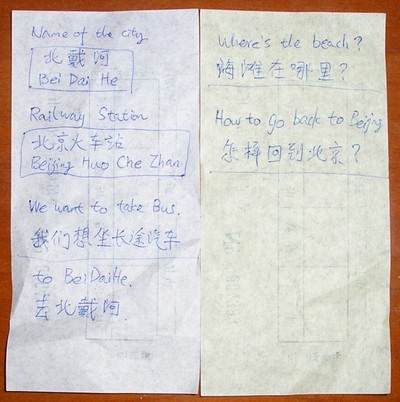 Name of the city
北戴河
Bei Dai He
Railway Station
北京火车站
Beijing Huo Che Zhan
We want to take Bus.
我们想坐长途汽车
to BeiDaiHe.
去北戴河.
Where's the beach?
海滩在哪里?
How to go back to Beijing
怎样回到北京?